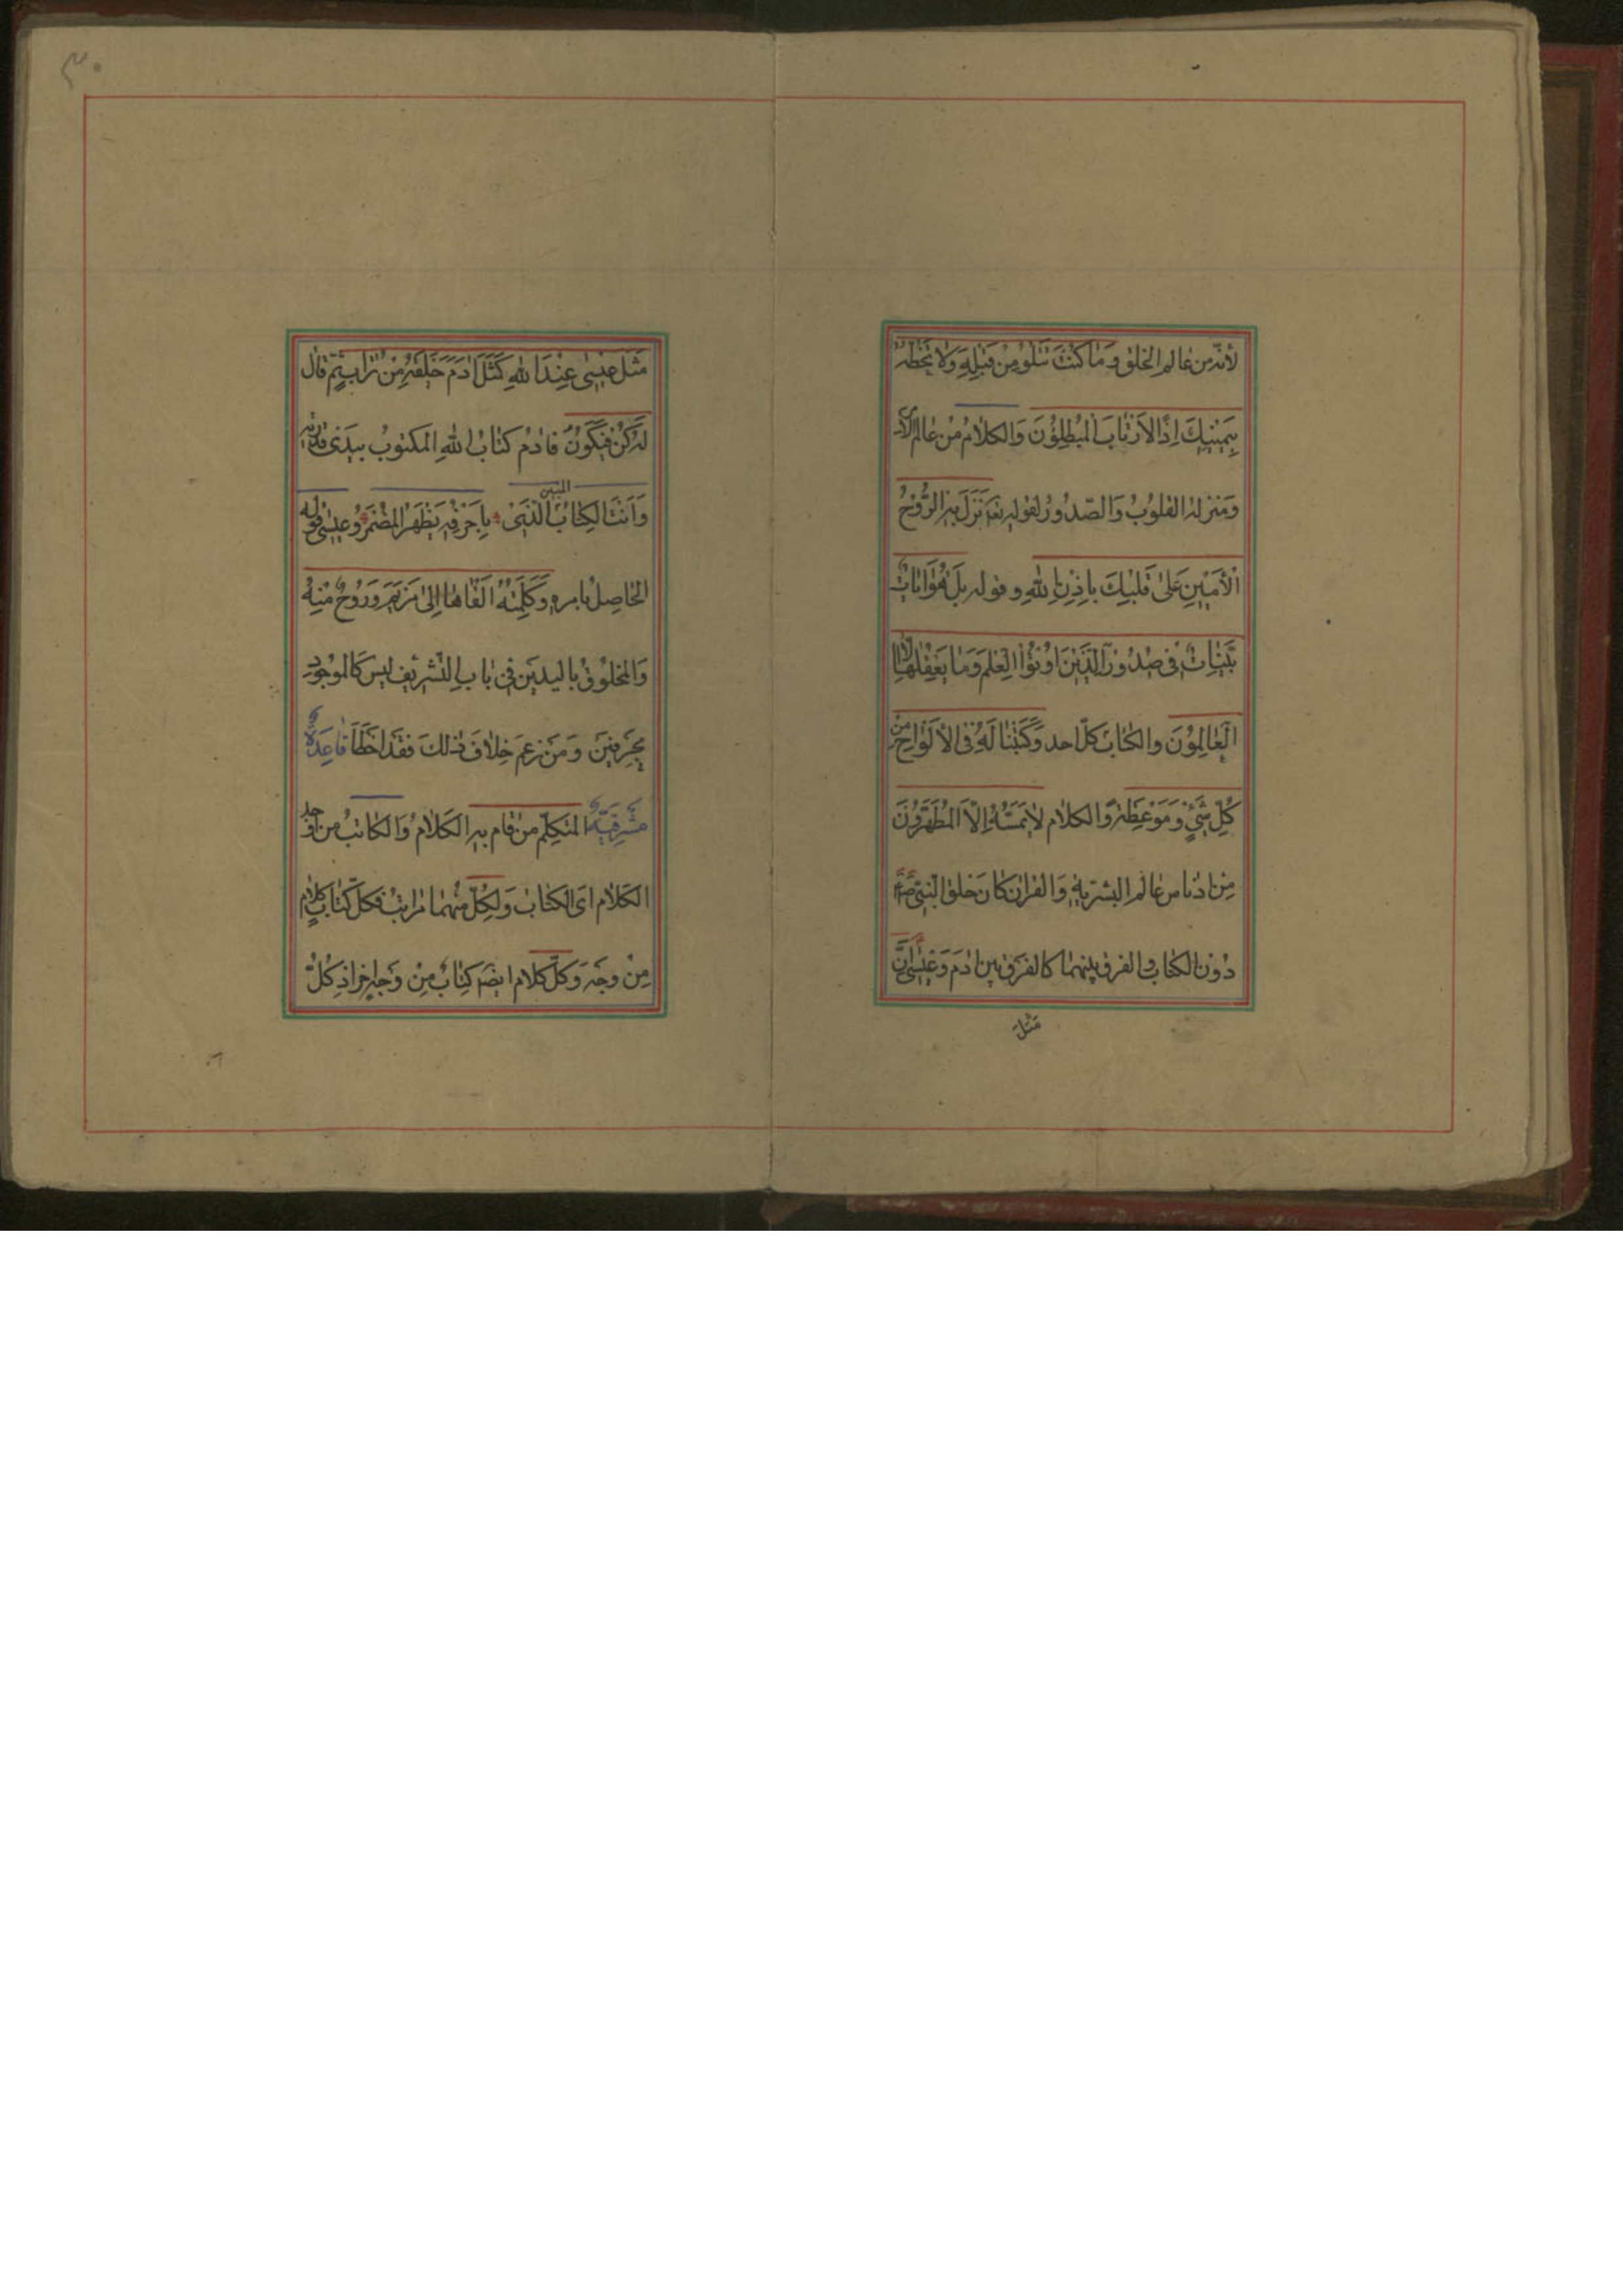 لأنّه من عالم الخلق وَمَا كُنْتَ تَتْلُو مِنْ قَبْلِهِ وَلَا تَخُطُّهُ
بِيَمِينِكَ اِذًا لَارْتَابَ الْمُبْطِلُوْنَ وَالكلامُ من عالم الامر
وَمَنزله القلوبُ وَالصّدُورُ لقوله تعَ نَزَلَ بِهِ الرُّوْحُ
الْأَمِيْنِ عَلىٰ قَلْبِكَ بِاِذْنِ اللهِ وقوله بَلْ هُوَ اٰيَاتٌ
بَيِّنَاتٌ فِى صُدُورِ الَّذِيْنَ اُوْتُوْا الْعِلْمَ وَمَا يَعْقِلُهَا اِلَّا
الْعَالِمُوْنَ والكتابُ كلّ احد وَكَتَبْنَا لَهُ فِى الْأَلْوَاحِ مِنْ
كُلِّ شَيْءٍ وَمَوْعِظَةً وَالكلام لَا يَمَسُّهُ اِلَّا الْمُطَهَّرُوْنَ
مِن ادْناس عَالم البشريّةِ وَالقران كانَ خلق النّبيّ صَ
دُوْن الكتاب والفرق بينهما كالفرق بين ادَم وَعيْسٰى اِنَّ
مَثَلَ
مَثَلَ عِيْسٰى عِنْدَ اللهِ كَمَثَلِ اٰدَمَ خَلَقَهُ مِنْ تُرَابٍ ثُمَّ قَالَ
لَهُ كُنْ فَيَكُوْنُ فَادمُ كتابُ اللهِ المكتوبُ بيدَى قدرته
المبين
وَاَنْتَ الكِتابُ الَّذى بِاَحْرفِهِ يَظْهَرُ المُضْمَرُ وعيسٰى قوله
الحَاصِلُ بامره وَكَلِمَتُهُ اَلْقَاهَا اِلىٰ مَرْيَمَ وَرُوحٌ مِنْهُ
وَالمخلُوقُ باليدَين فى بَاب التّشريف ليس كَالموجُود
بحَرفَينِ وَمَن زعَم خِلافَ ذلكَ فقَد اَخْطَأَ قاعِدَةٌ
مَشْرِقيَّةٌ المتكلّم من قام به الكَلامُ وَالكاتبُ من اوجد
الكَلام اى الكتابَ وَلكلّ منْهما مَراتبْ فكلّ كتَاب كلام
مِنْ وجْه وَكلّ كلام ايضَ كتابٌ مِنْ وَجهٍ اخر اذ كلّ